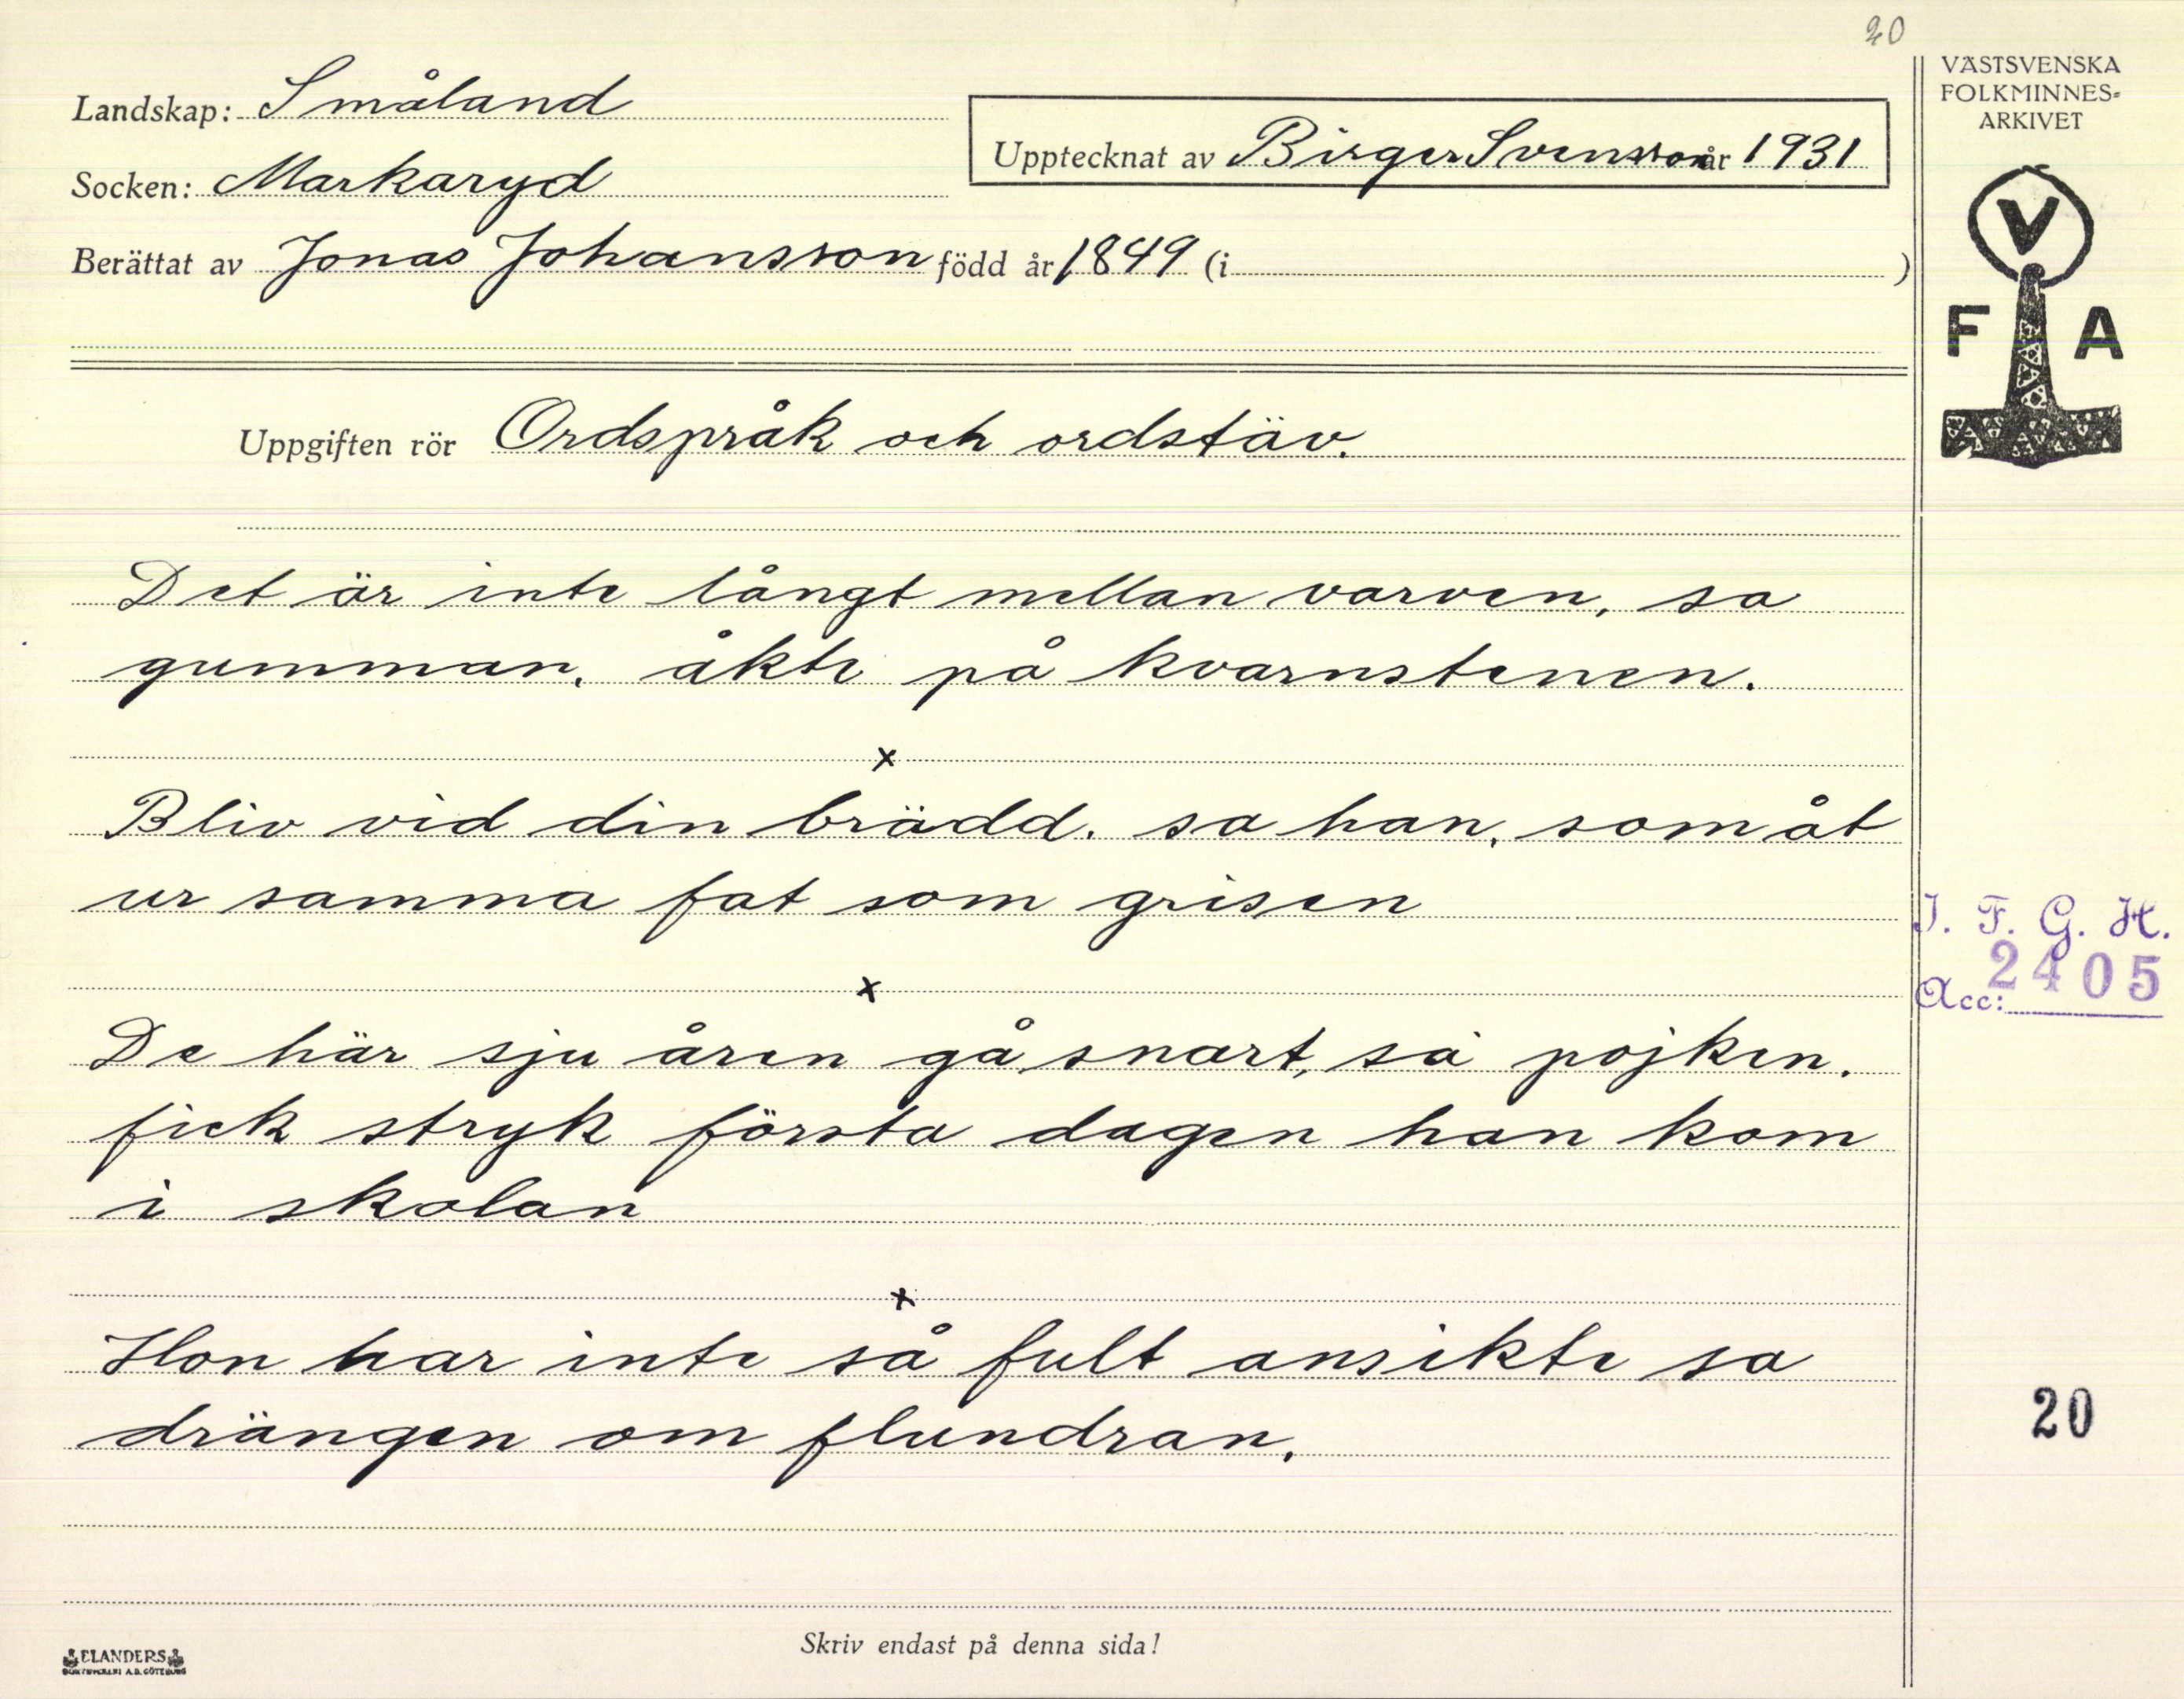 20
Landskap: Småland
Upptecknat av Birger Svensson år 1931
Socken: Markaryd
Berättat av Jonas Johansson född år 1849 (i )
VÄSTSVENSKA
FOLKMINNES-
ARKIVET
V
F A
Uppgiften rör Ordspråk och ordstäv.
Det är inte långt mellan varven, sa
gumman, åkte på kvarnstenen.
x
Bliv vid din brädd. sa han, som åt
ur samma fat som grisen
x
De här sju åren gå snart, sa pojken,
fick stryk första dagen han kom
i skolan
x
Hon har inte så fult ansikte sa
drängen om flundran.
I. F. G. H.
Acc: 2405
20
Skriv endast på denna sida!
ELANDERS
BOKTRYCKERI A.B. GÖTEBORG